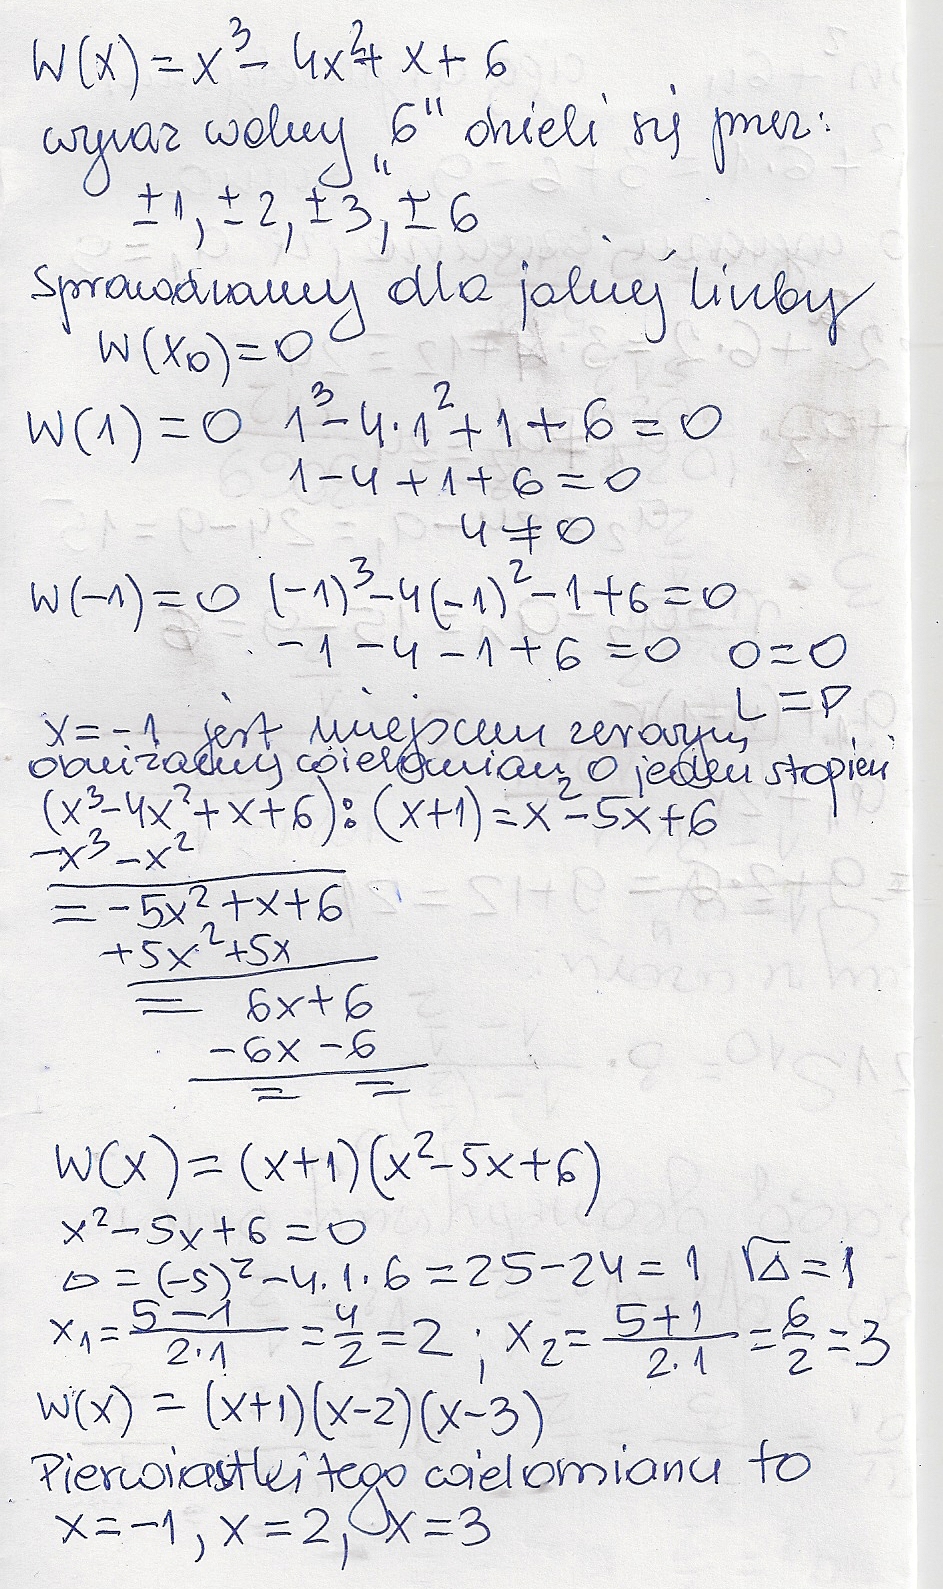 W(x) = x³ - 4x² + x + 6
wyraz wolny „6" dzieli się przez:
±1, ±2, ±3, ±6
Sprawdzamy dla jakiej liczby
W(x₀) = 0
W(1) = 0 1³ - 4·1² + 1 + 6 = 0
1 - 4 + 1 + 6 = 0
4 ≠ 0
W(-1) = 0 (-1)³ - 4(-1)² - 1 + 6 = 0
-1 - 4 - 1 + 6 = 0 0 = 0
L = P
x = -1 jest miejscem zerowym
obniżamy wielomian o jeden stopień
(x³ - 4x² + x + 6) : (x+1) = x² - 5x + 6
-x³ - x²
= -5x² + x + 6
+5x² + 5x
= 6x + 6
-6x - 6
= =
W(x) = (x+1)(x² - 5x + 6)
x² - 5x + 6 = 0
Δ = (-5)² - 4·1·6 = 25 - 24 = 1 √Δ = 1
x₁ = (5-1)/(2·1) = 4/2 = 2 ; x₂ = (5+1)/(2·1) = 6/2 = 3
W(x) = (x+1)(x-2)(x-3)
Pierwiastki tego wielomianu to
x = -1, x = 2, x = 3